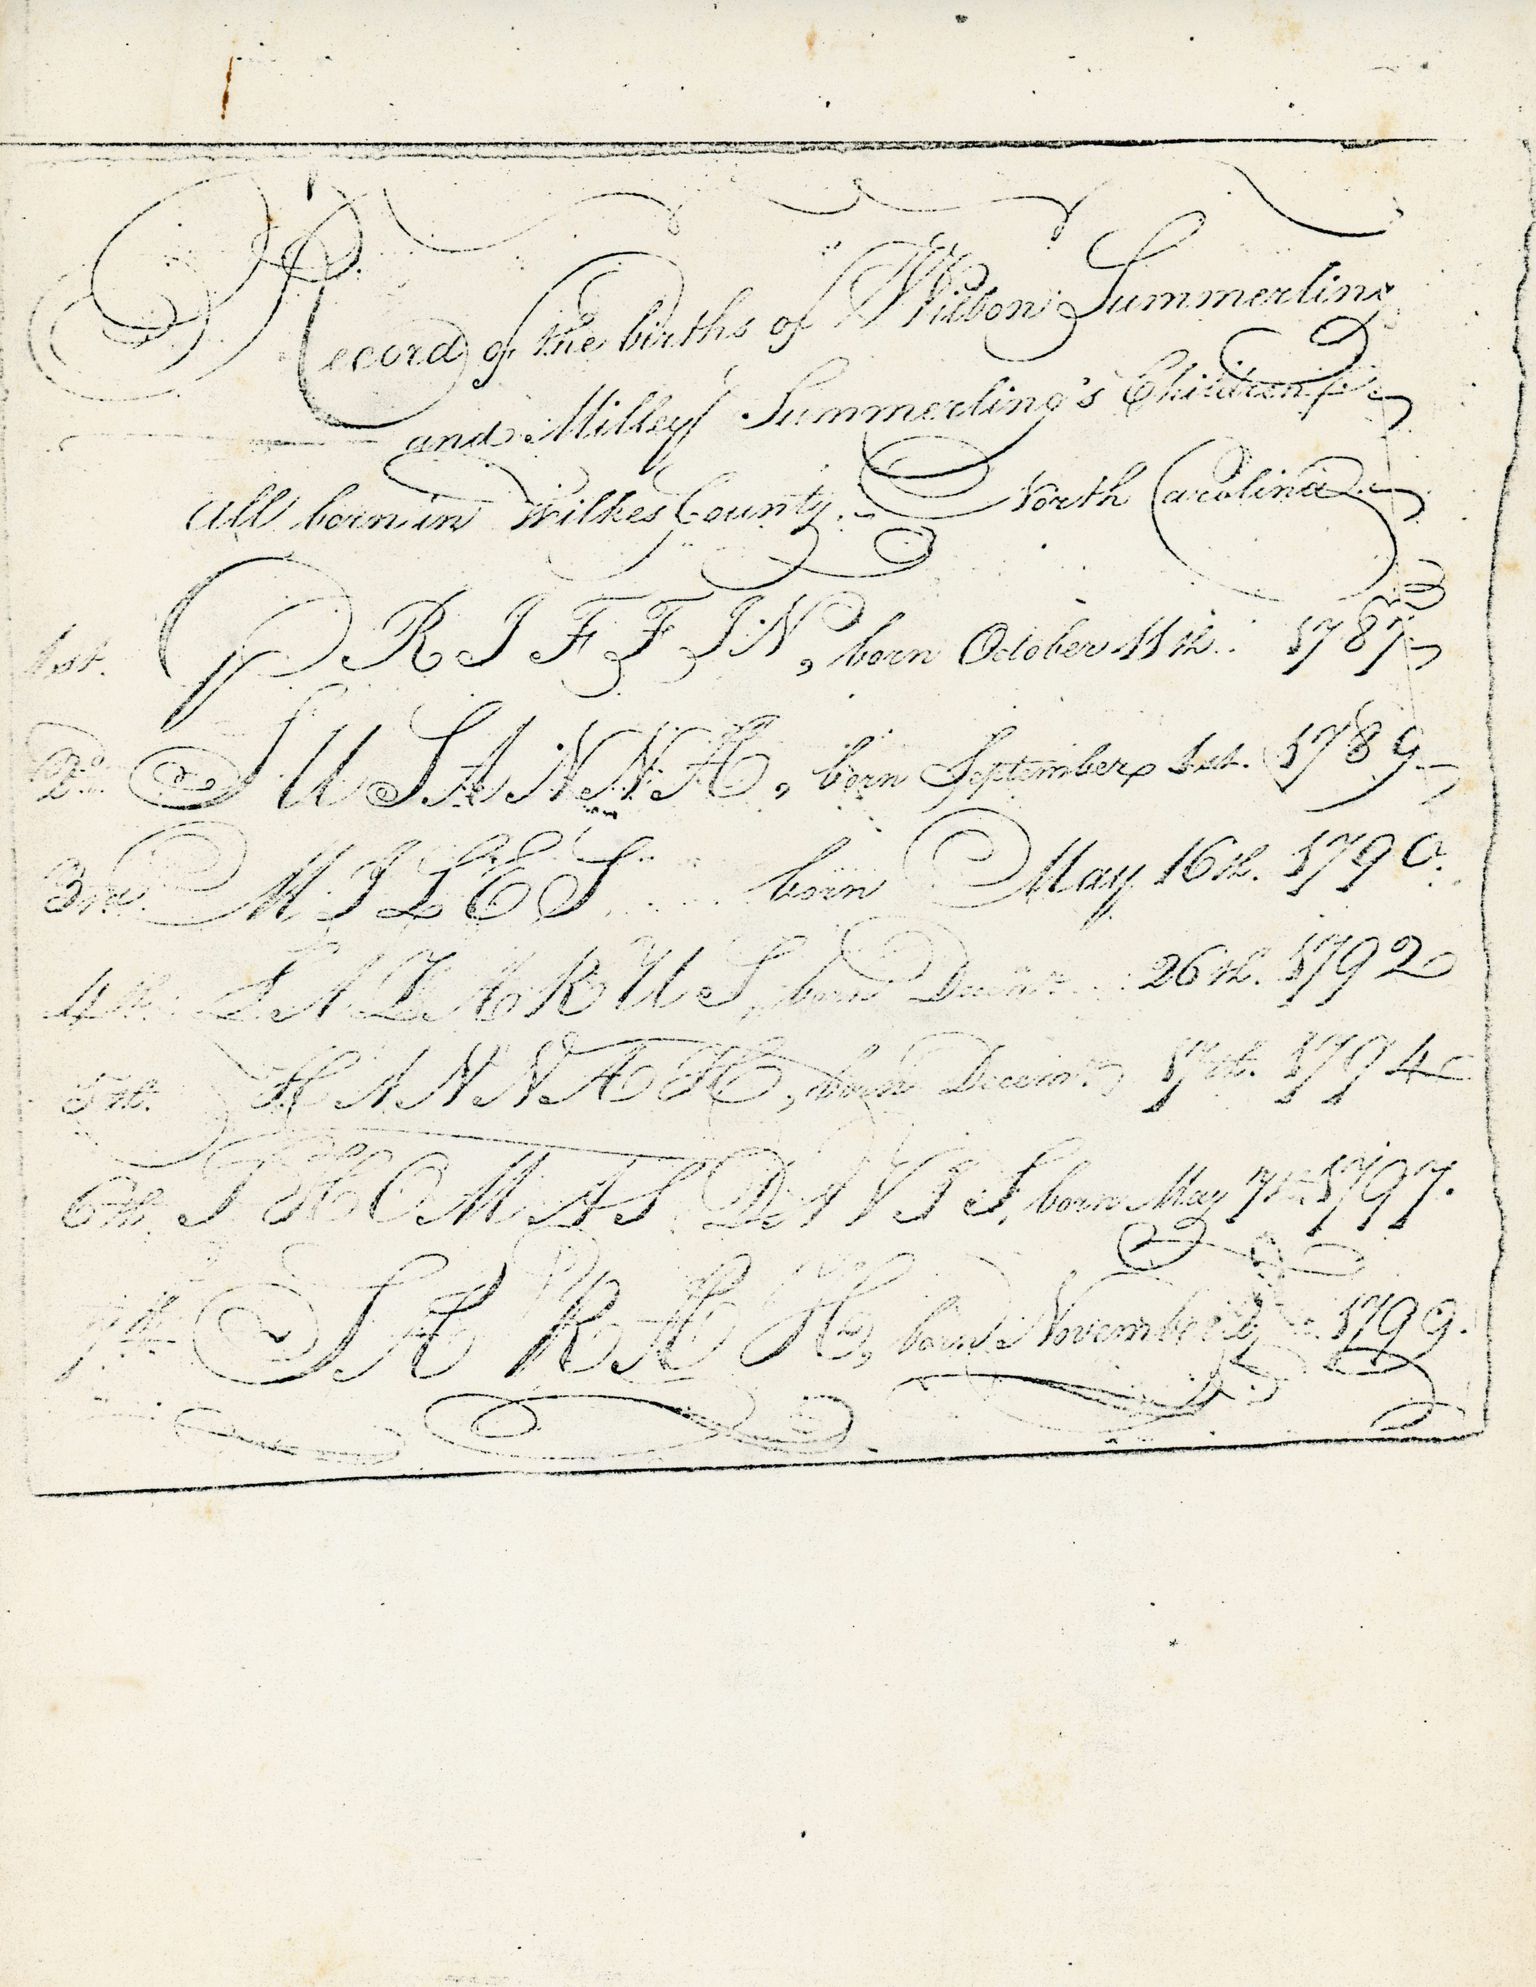 Record of the births of Wilbon Summerling
and Milley Summerling's Children,
all born in Wilkes County. North Carolina.
1st. GRIFFIN, born October 11th. 1787
2d. SUSANNA, born September 1st. 1789
3rd. MILES born May 16th. 1790.
4th. LAZARUS, born 26th. 1792
5th. HANNAH, born Decem.r 17th. 1794
6th. THOMAS DAVIS, born May 7th. 1797.
7th. SARAH, born November 1799.